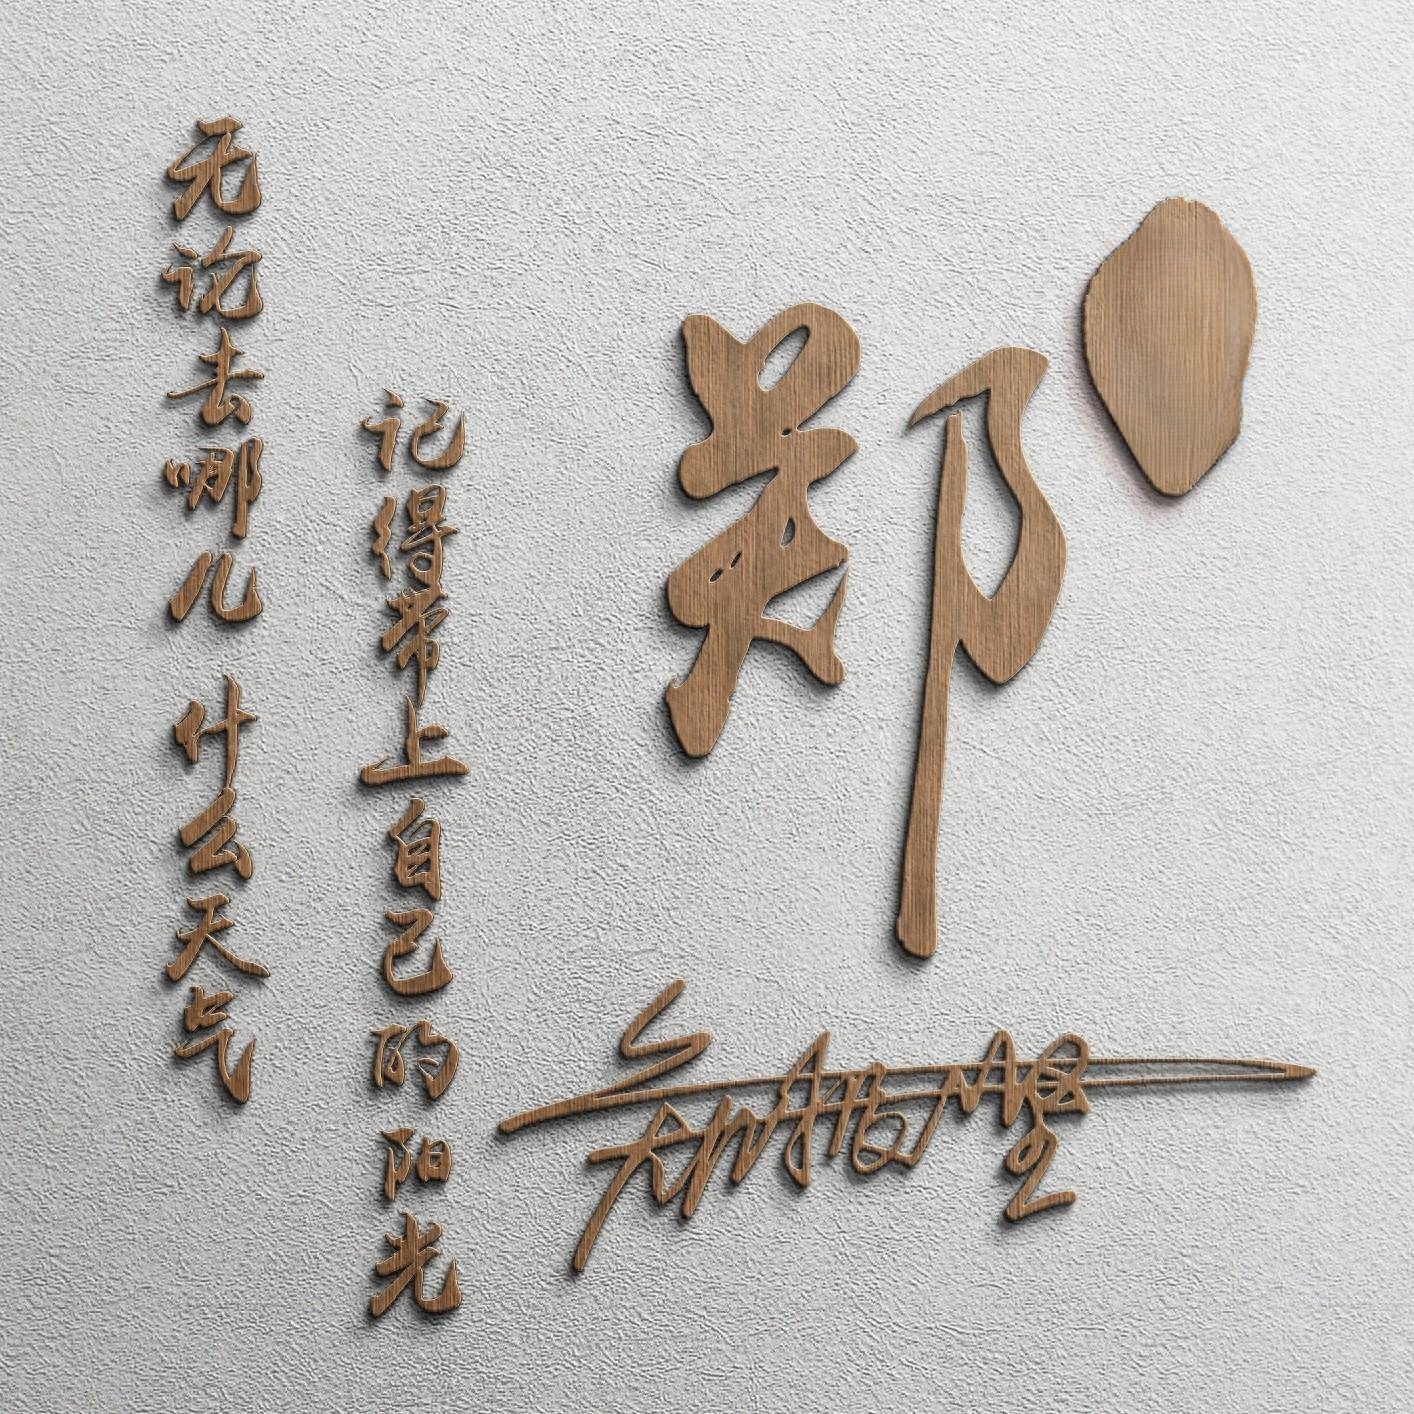 无论去哪儿 什么天气
记得带上自己的阳光
郑